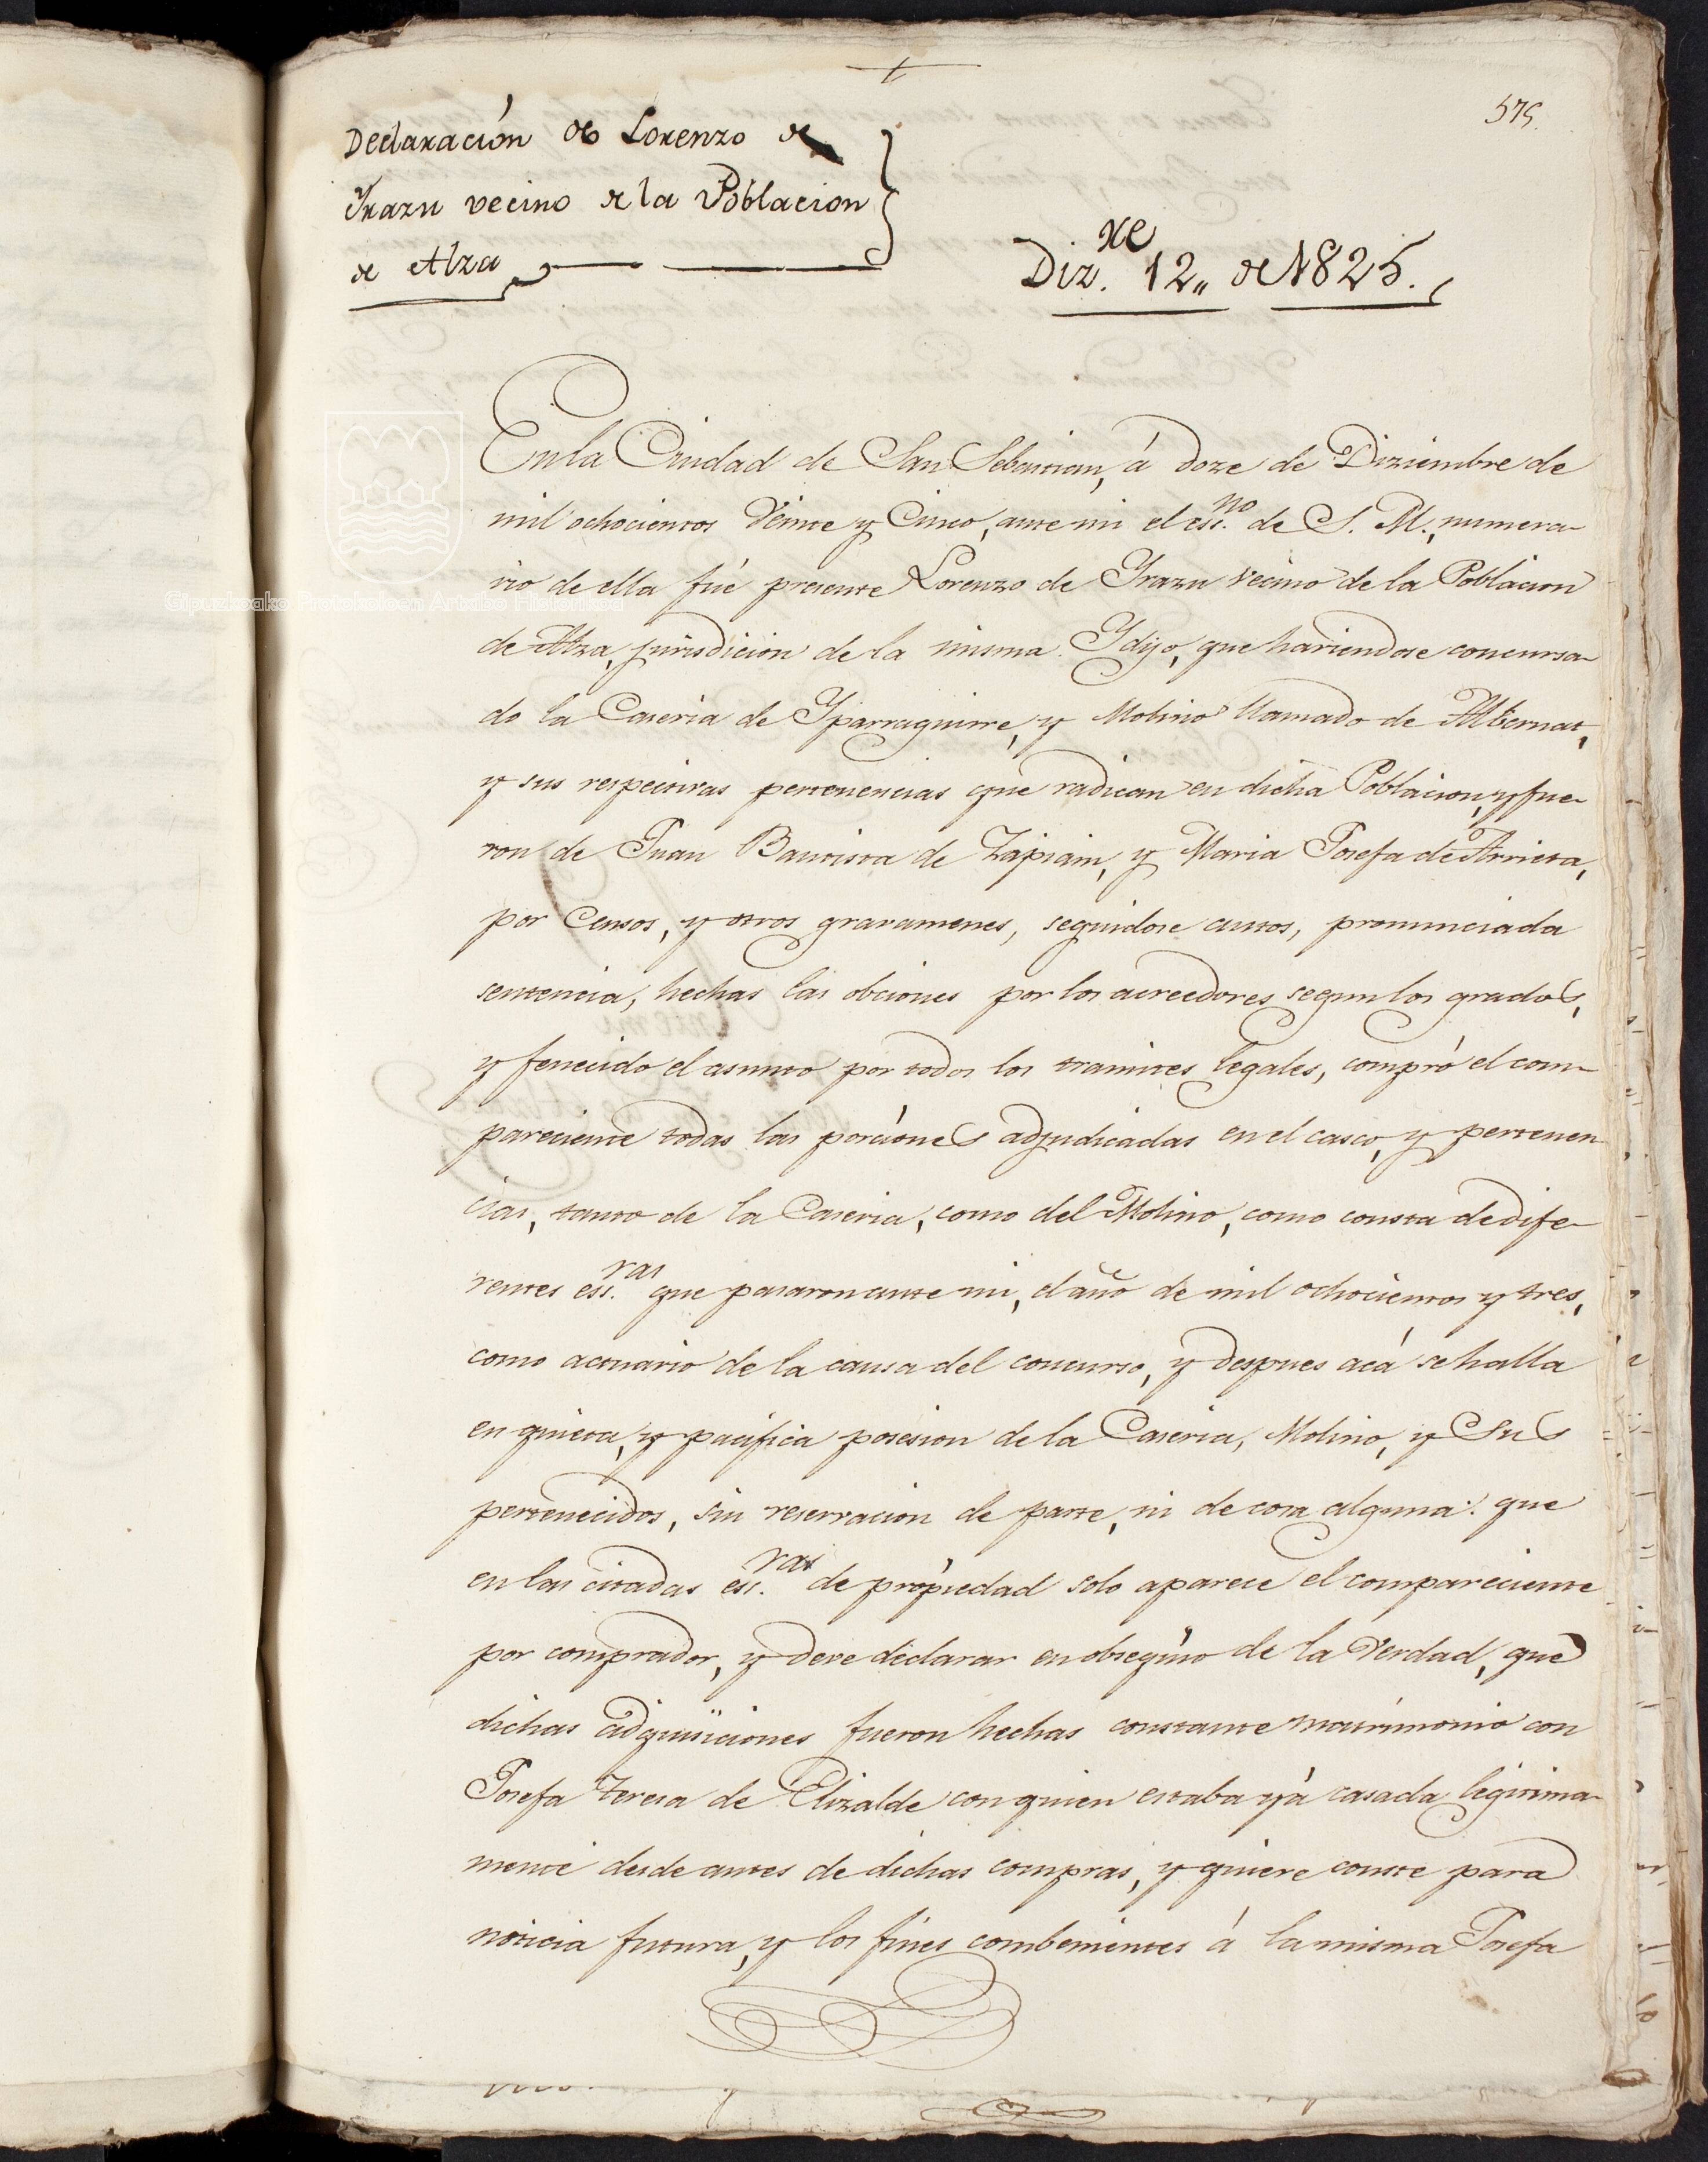 575.
Declaracion de Lorenzo de
Yrazu vecino de la Poblacion
de Alza
Diz.re 12,, de 1825.
En la Ciudad de San Sebastian, à doze de Diziembre de
mil ochocientos Veinte y Cinco, ante mi el ess.no de S. M., numera-
rio de ella fué presente Lorenzo de Yrazu vecino de la Poblacion
de Alza, jurisdicion de la misma. Y dijo, que haviendose concursa-
do la Caseria de Yparraguirre, y Molino llamado de Mbernat,
y sus respectivas pertenencias que radican en dicha Poblacion, y fue-
ron de Juan Bautista de Zapiain, y Maria Josefa de Arrieta,
por Censos, y otros gravamenes, seguidose autos, pronunciada
sentencia, hechas las obciones por los acreedores segun los grados,
y fenecido el asunto por todos los tramites legales, compró el com-
pareciente todas las porciones adjudicadas en el casco, y pertenen
cias, tanto de la Caseria, como del Molino, como consta de dife-
rentes ess.ras que pasaron ante mi, el año de mil ochocientos y tres,
como actuario de la causa del concurso, y despues acá se halla
en quieta, y pacifica posesion de la Caseria, Molino, y Sus
pertenecidos, sin reservacion de parte, ni de cosa alguna: que
en las citadas ess.ras de propiedad solo aparece el compareciente
por comprador, y deve declarar en obsequio de la Verdad, que
dichas adquisiciones fueron hechas constante matrimonio con
Josefa Teresa de Elizalde con quien estaba yà casada legitima-
mente desde antes de dichas compras, y quiere conste para
noticia futura, y los fines combenientes à la misma Josefa
Gipuzkoako Protokoloen Artxibo Historikoa